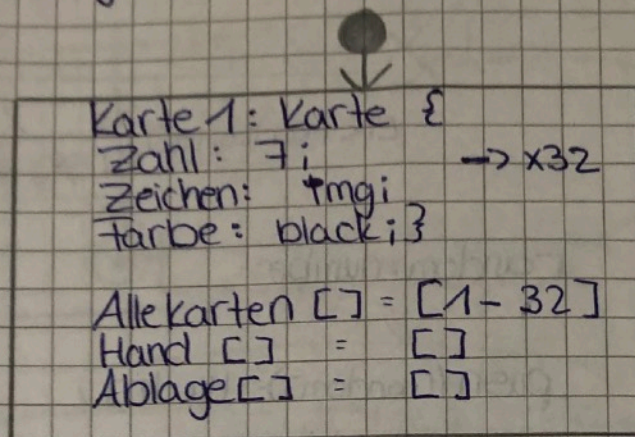 Karte 1: Karte {
Zahl: 7; -> x32
Zeichen: img;
Farbe: black;}
Allekarten [] = [1 - 32]
Hand [] = []
Ablage [] = []